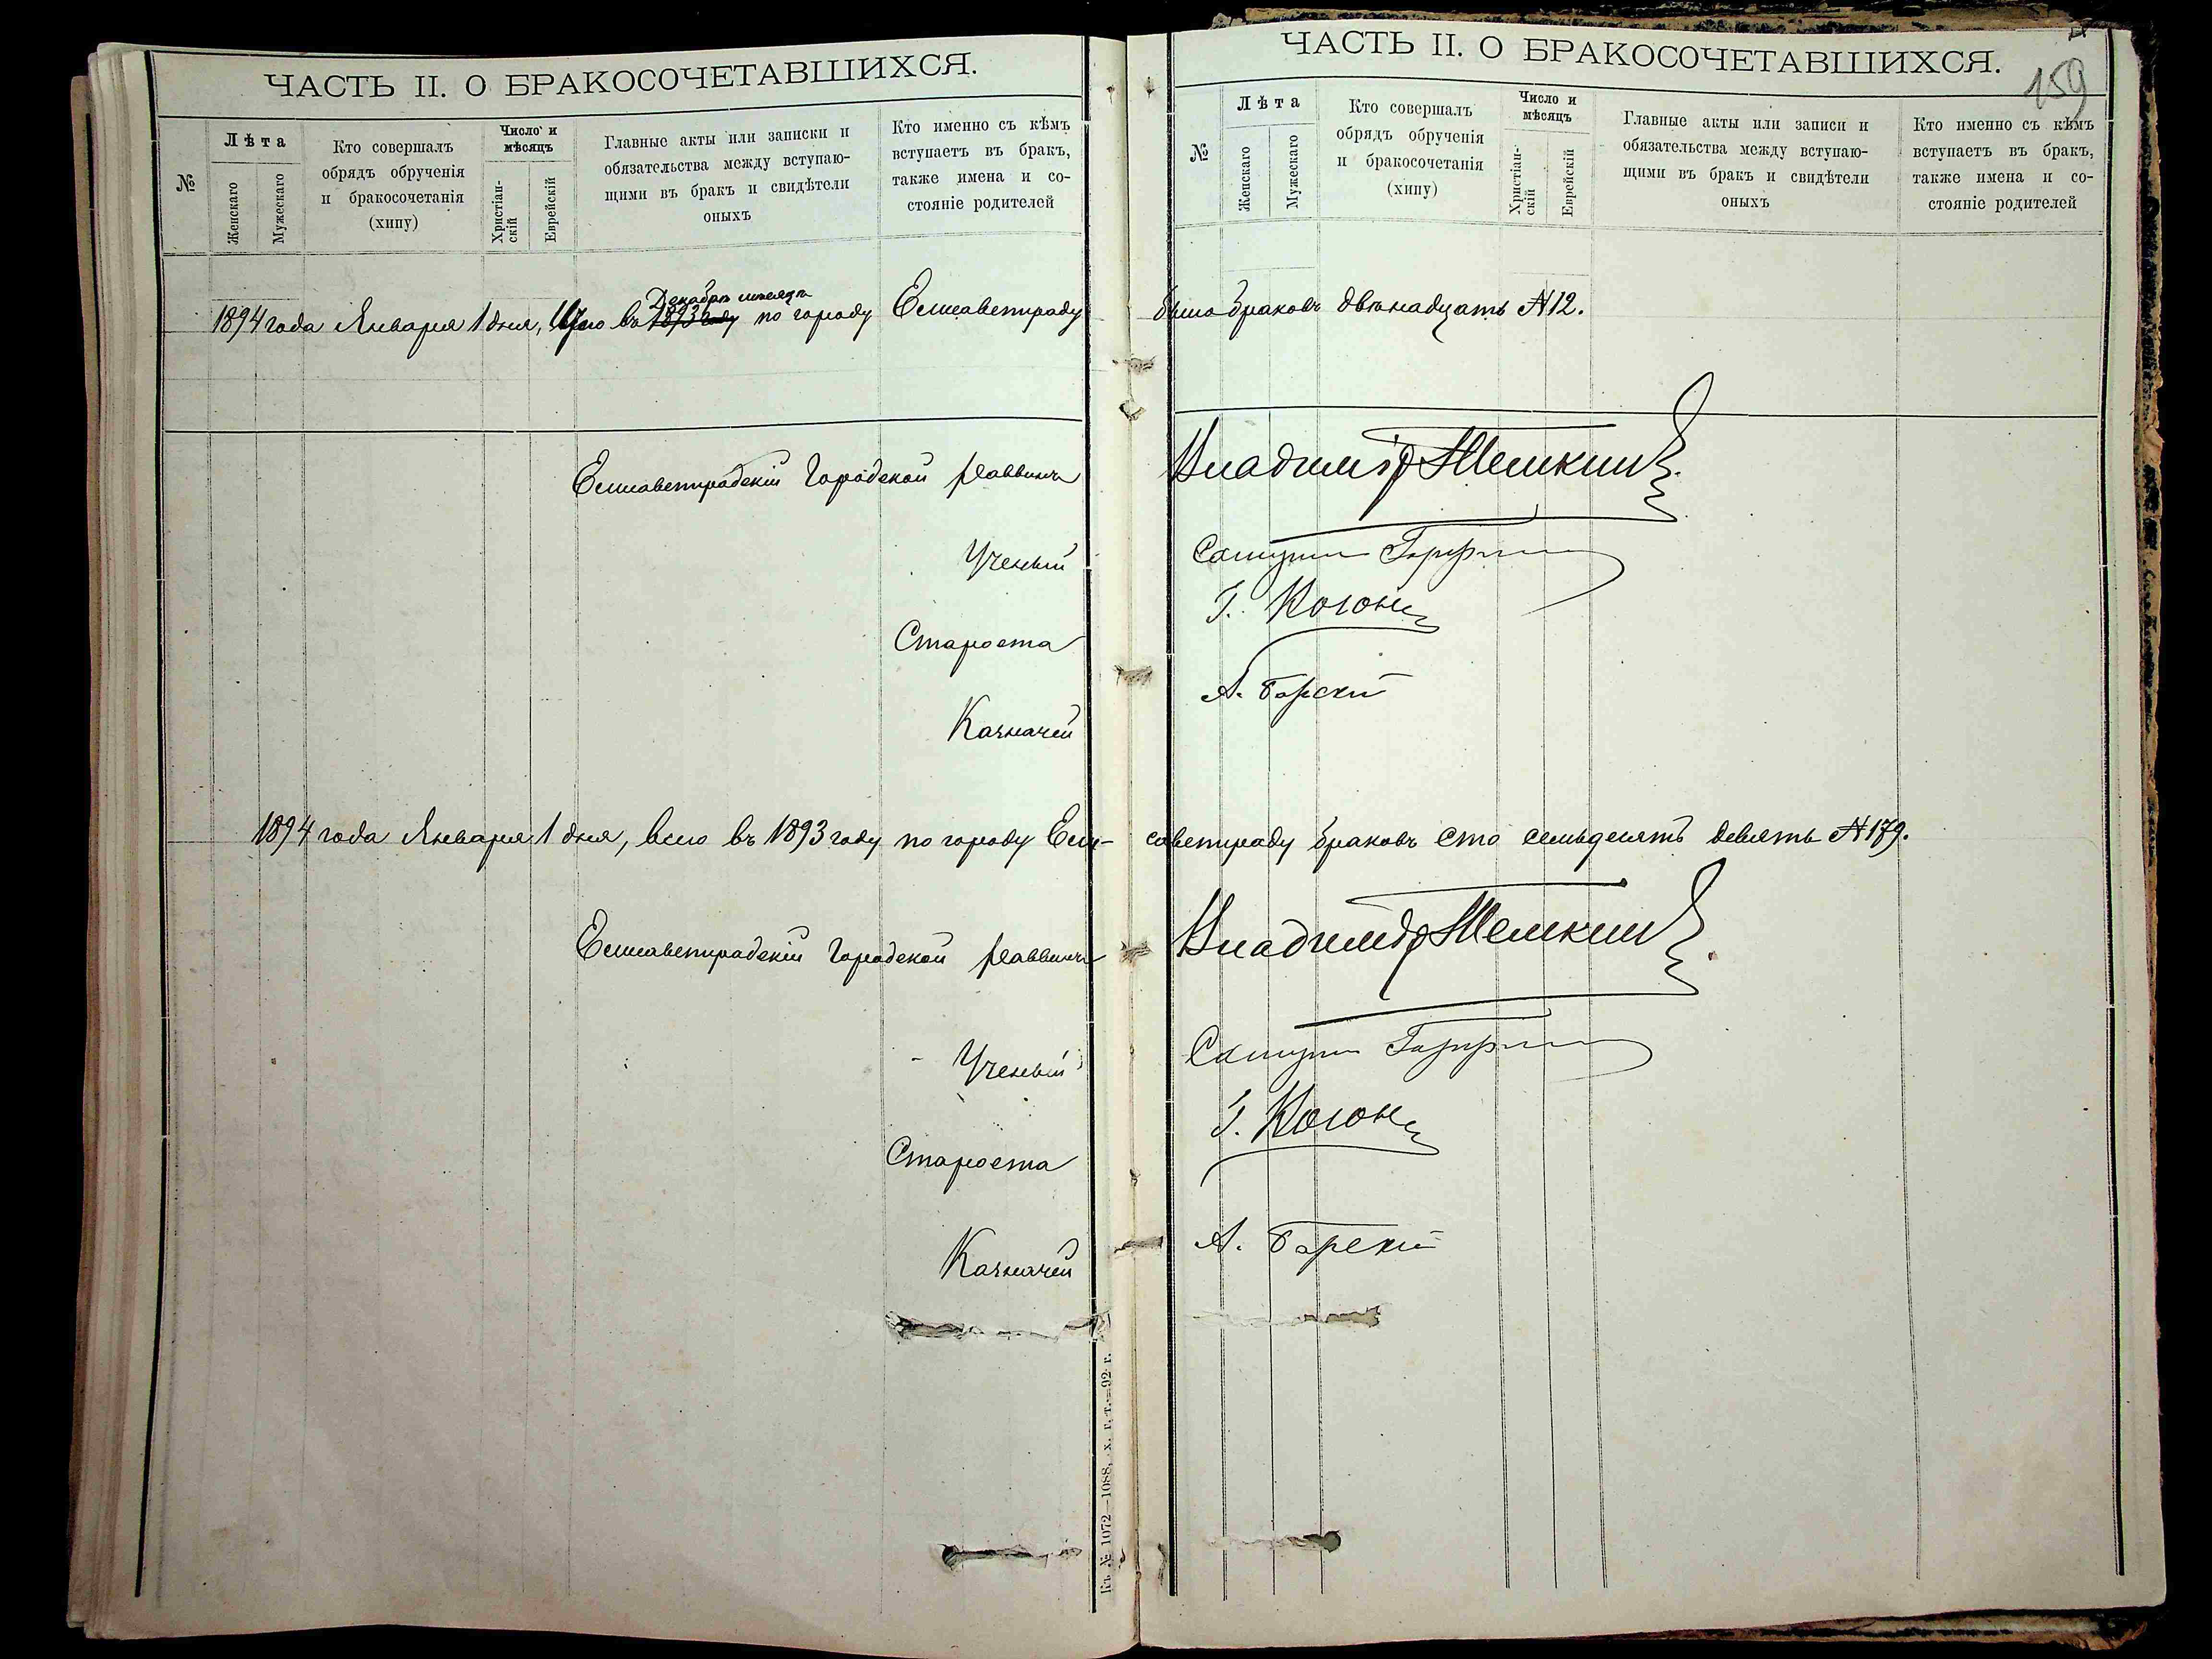 ЧАСТЬ II. О БРАКОСОЧЕТАВШИХСЯ.
№
Лѣта
Женскаго
Мужескаго
Кто совершалъ
обрядъ обрученія
и бракосочетанія
(хипу)
Число и
мѣсяцъ
Христіан-
скій
Еврейскій
Главные акты или записки и
обязательства между вступаю-
щими въ бракъ и свидѣтели
оныхъ
Кто именно съ кѣмъ
вступаетъ въ бракъ,
также имена и со-
стояніе родителей
Декабрѣ мѣсяцѣ
1894 года Января 1 дня, въ 1893 году по городу Елисаветграду
Елисаветградскій Городской Раввинъ
Ученый
Староста
Казначей
1894 года Января 1 дня, всего въ 1893 году по городу Ели-
Елисаветградскій Городской Раввинъ
Ученый
Староста
Казначей
Къ № 1072—1088, х. г. т.—92 г.
ЧАСТЬ II. О БРАКОСОЧЕТАВШИХСЯ.
159
№
Лѣта
Женскаго
Мужескаго
Кто совершалъ
обрядъ обрученія
и бракосочетанія
(хипу)
Число и
мѣсяцъ
Христіан-
скій
Еврейскій
Главные акты или записи и
обязательства между вступаю-
щими въ бракъ и свидѣтели
оныхъ
Кто именно съ кѣмъ
вступаетъ въ бракъ,
также имена и со-
стояніе родителей
было браковъ двѣнадцать №12.
Владиміръ Темкинъ.
Самуилъ
Г. Когонъ
А. Барскій
саветграду браковъ сто семьдесятъ девять №179.
Владиміръ Темкинъ.
Самуилъ
Г. Когонъ
А. Барскій